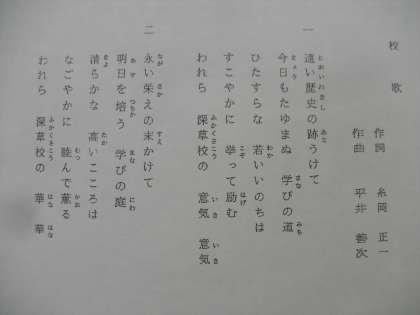 校歌
作詞 糸岡 正一
作曲 平井 善次
一
遠い歴史の跡うけて
今日もたゆまぬ 学びの道
ひたすらな 若いいのちは
すこやかに 挙って励む
われら 深草校の 意気 意気
二
永い栄えの末かけて
明日を培う 学びの庭
清らかな 高いこころは
なごやかに 睦んで薫る
われら 深草校の 華 華